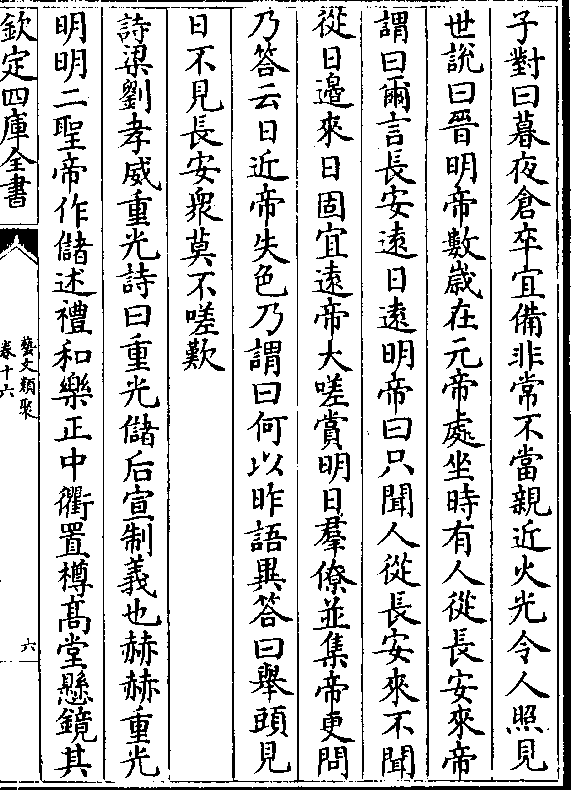 子對曰暮夜倉卒宜備非常不當親近火光令人照見
世說曰晉明帝數歲在元帝處坐時有人從長安來帝
謂曰爾言長安遠日遠明帝曰只聞人從長安來不聞
從日邊來日固宜遠帝大嗟賞明日羣僚並集帝更問
乃答云日近帝失色乃謂曰何以昨語異答曰舉頭見
日不見長安衆莫不嗟歎
詩梁劉孝威重光詩曰重光儲后宣制義也赫赫重光
明明二聖帝作儲述禮和樂正中衢置樽髙堂懸鏡其
欽定四庫全書
藝文類聚
卷十六
六